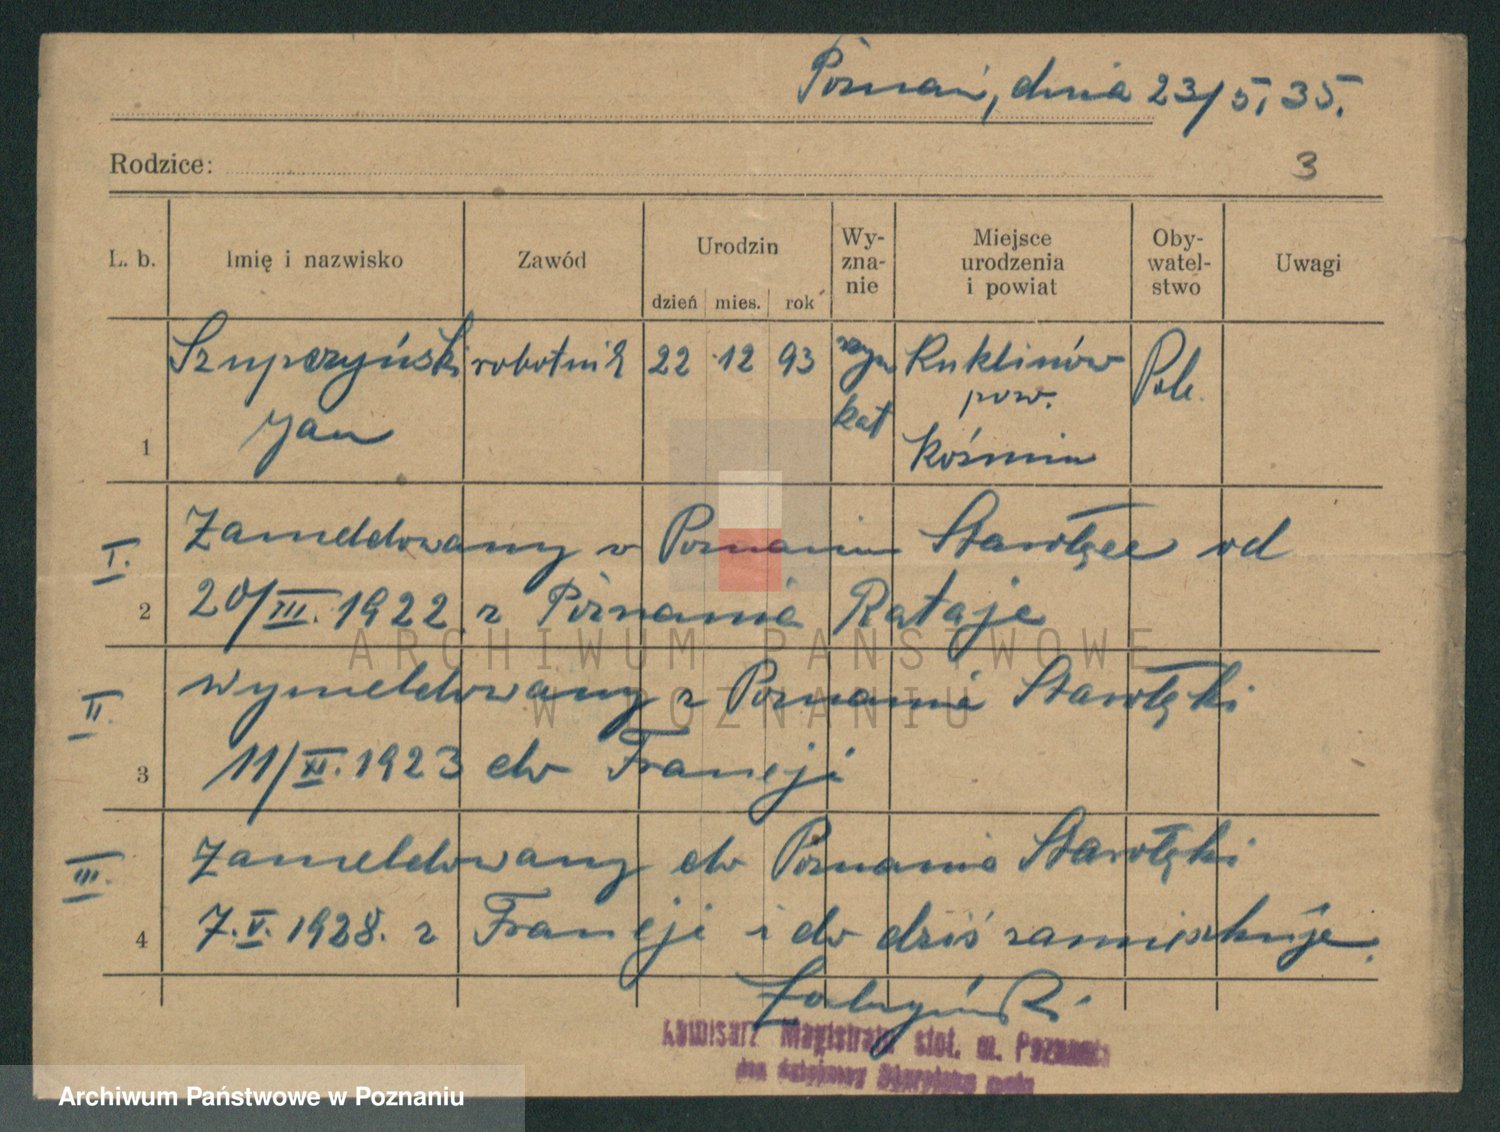 Poznań, dnia 23/5. 35.
Rodzice:
3
L. b. Imię i nazwisko Zawód Urodzin Wy-zna-nie Miejsce urodzenia i powiat Oby-watel-stwo Uwagi
dzień mies. rok
Szupczyński robotnik 22 12 93 rzym Kuklinów Pol.
pow.
1 Jan kat Koźmin
I. Zameldowany w Poznaniu Starołęce od
2 20/III. 1922 z Poznania Rataje
II. wymeldowany z Poznania Starołęki
3 11/XI. 1923 do Francji
III. Zameldowany do Poznania Starołęki
4 7.V. 1928. z Francji i do dziś zamieszkuje.
Komisarz Magistratu stoł. m. Poznania
ARCHIWUM PAŃSTWOWE
W POZNANIU
Archiwum Państwowe w Poznaniu